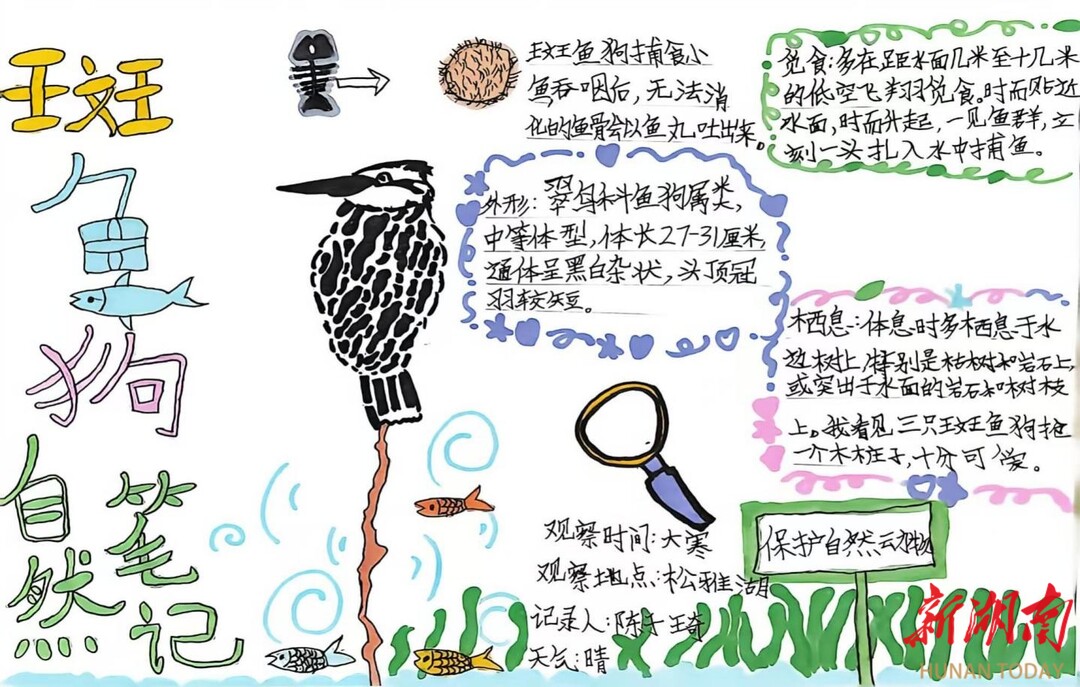 斑
鱼
狗
自然
笔记
斑鱼狗捕食小
鱼吞咽后，无法消
化的鱼骨会以鱼丸吐出来。
觅食：多在距水面几米至十几米
的低空飞翔觅食。时而贴近
水面，时而升起，一见鱼群，立
刻一头扎入水中捕鱼。
外形：翠鸟科鱼狗属类，
中等体型，体长27-31厘米，
通体呈黑白杂状，头顶冠
羽较短。
栖息：体息时多栖息于水
边树上，特别是枯树和岩石上，
或突出于水面的岩石和树枝
上。我看见三只斑鱼狗抢
一个木桩子，十分可爱。
观察时间：大寒
观察地点：松雅湖
记录人：陈子琦
天气：晴
保护自然动物
新湖南
HUNAN TODAY